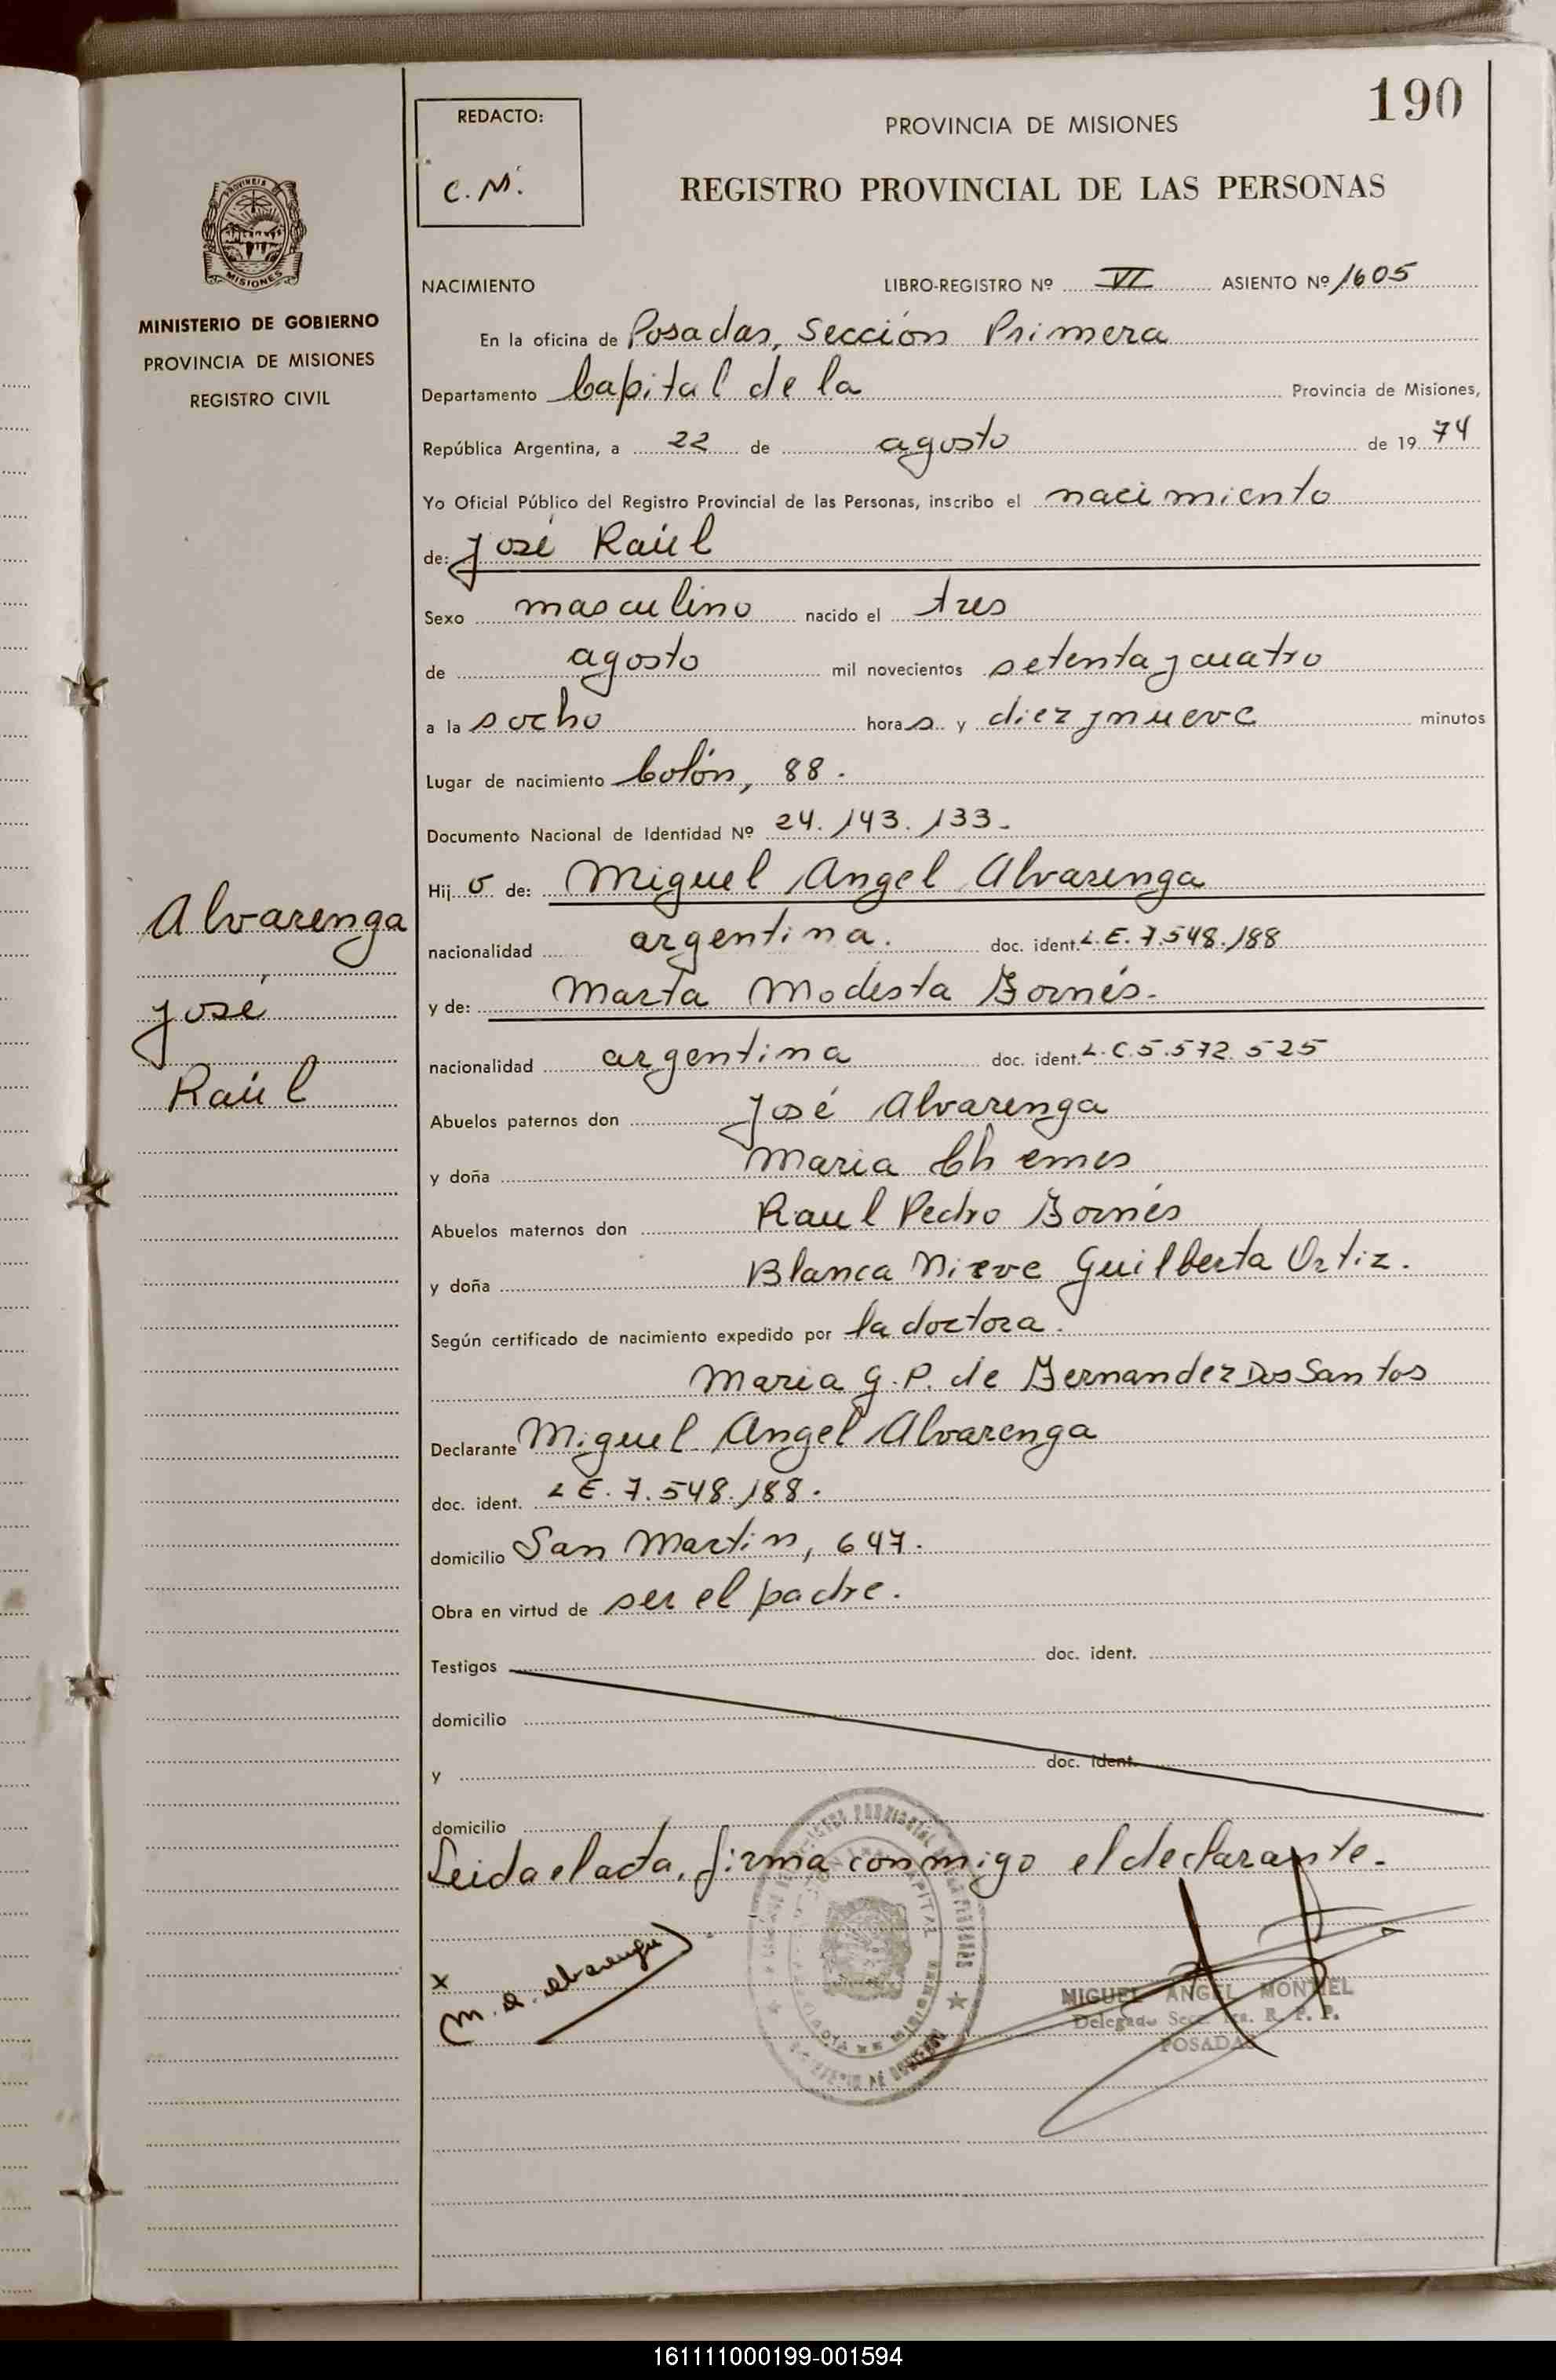 190
REDACTO:
C. M.
PROVINCIA DE MISIONES
REGISTRO PROVINCIAL DE LAS PERSONAS
MISIONES
MINISTERIO DE GOBIERNO
PROVINCIA DE MISIONES
REGISTRO CIVIL
NACIMIENTO LIBRO-REGISTRO Nº VI ASIENTO Nº 1605
En la oficina de Posadas, Sección Primera
Departamento Capital de la Provincia de Misiones,
República Argentina, a 22 de agosto de 19 74
Yo Oficial Público del Registro Provincial de las Personas, inscribo el nacimiento
de: José Raúl
Sexo masculino nacido el tres
de agosto mil novecientos setenta y cuatro
a la s ocho hora s y diez y nueve minutos
Lugar de nacimiento Colón, 88.
Documento Nacional de Identidad Nº 24.143.133.
Hij o de: Miguel Angel Alvarenga
nacionalidad argentina. doc. ident. L.E. 7.548.188
y de: Marta Modesta Fornés.
nacionalidad argentina doc. ident. L.C. 5.572.525
Abuelos paternos don José Alvarenga
y doña Maria Chemes
Abuelos maternos don Raul Pedro Fornés
y doña Blanca Nieve Guilberta Ortiz.
Según certificado de nacimiento expedido por la doctora.
Maria G. P. de Fernandez Dos Santos
Declarante Miguel Angel Alvarenga
doc. ident. L E. 7.548.188.
domicilio San Martin, 647.
Obra en virtud de ser el padre.
Testigos doc. ident.
domicilio
y doc. ident.
domicilio
Leida el acta, firma conmigo el declarante.
Alvarenga
José
Raúl
x
M. A. Alvarenga
MIGUEL ANGEL MONTIEL
Delegado Secc. 1ra. R. P. P.
POSADAS
161111000199-001594